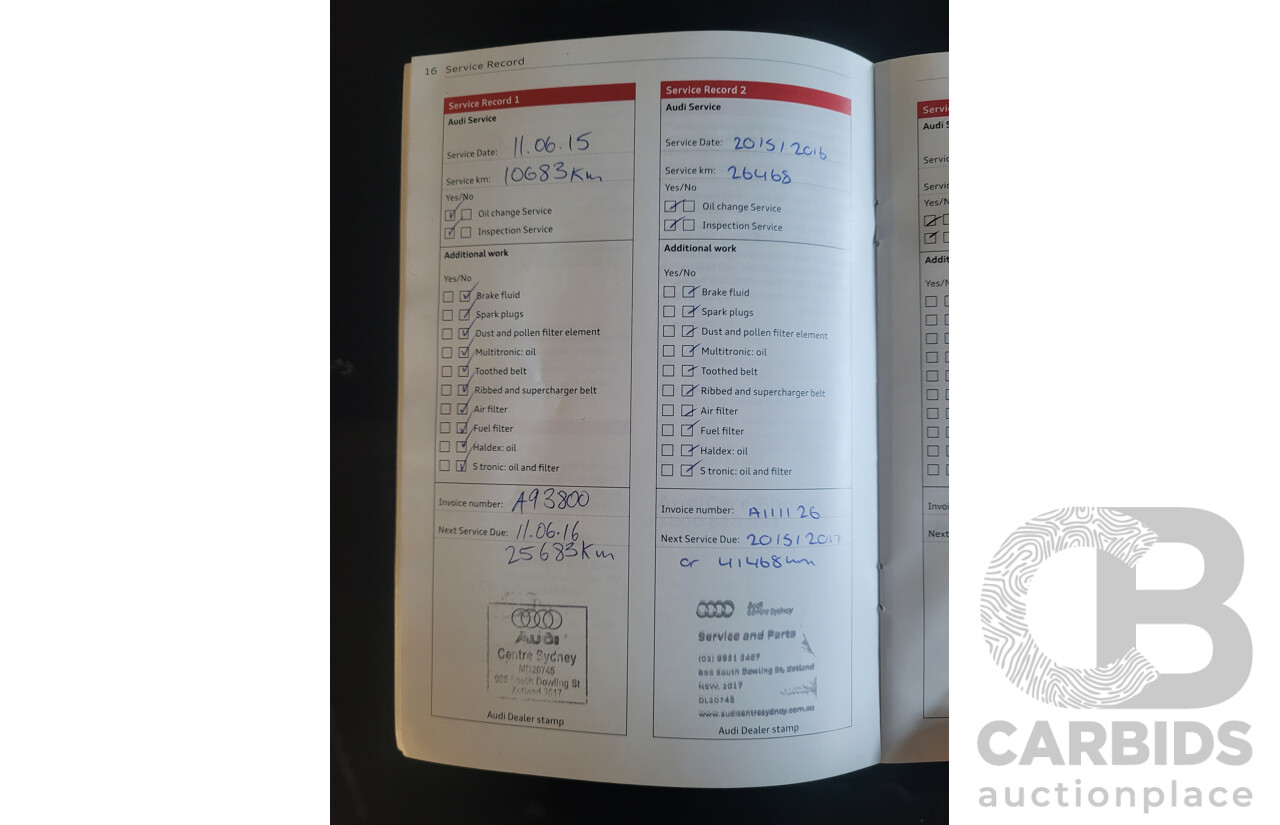 16 Service Record
Service Record 1
Audi Service
Service Date: 11.06.15
Service km: 10683Km
Yes/No
Oil change Service
Inspection Service
Additional work
Yes/No
Brake fluid
Spark plugs
Dust and pollen filter element
Multitronic: oil
Toothed belt
Ribbed and supercharger belt
Air filter
Fuel filter
Haldex: oil
S tronic: oil and filter
Invoice number: A93800
Next Service Due: 11.06.16
25683Km
Audi
Centre Sydney
MD20745
South Dowling St
Zetland 2017
Audi Dealer stamp
Service Record 2
Audi Service
Service Date: 20/5/2016
Service km: 26468
Yes/No
Oil change Service
Inspection Service
Additional work
Yes/No
Brake fluid
Spark plugs
Dust and pollen filter element
Multitronic: oil
Toothed belt
Ribbed and supercharger belt
Air filter
Fuel filter
Haldex: oil
S tronic: oil and filter
Invoice number: A111126
Next Service Due: 20/5/2017
or 41468km
Audi
Centre Sydney
Service and Parts
South Dowling St, Zetland
NSW, 2017
www.audicentresydney.com.au
Audi Dealer stamp
CB
CARBIDS
auctionplace